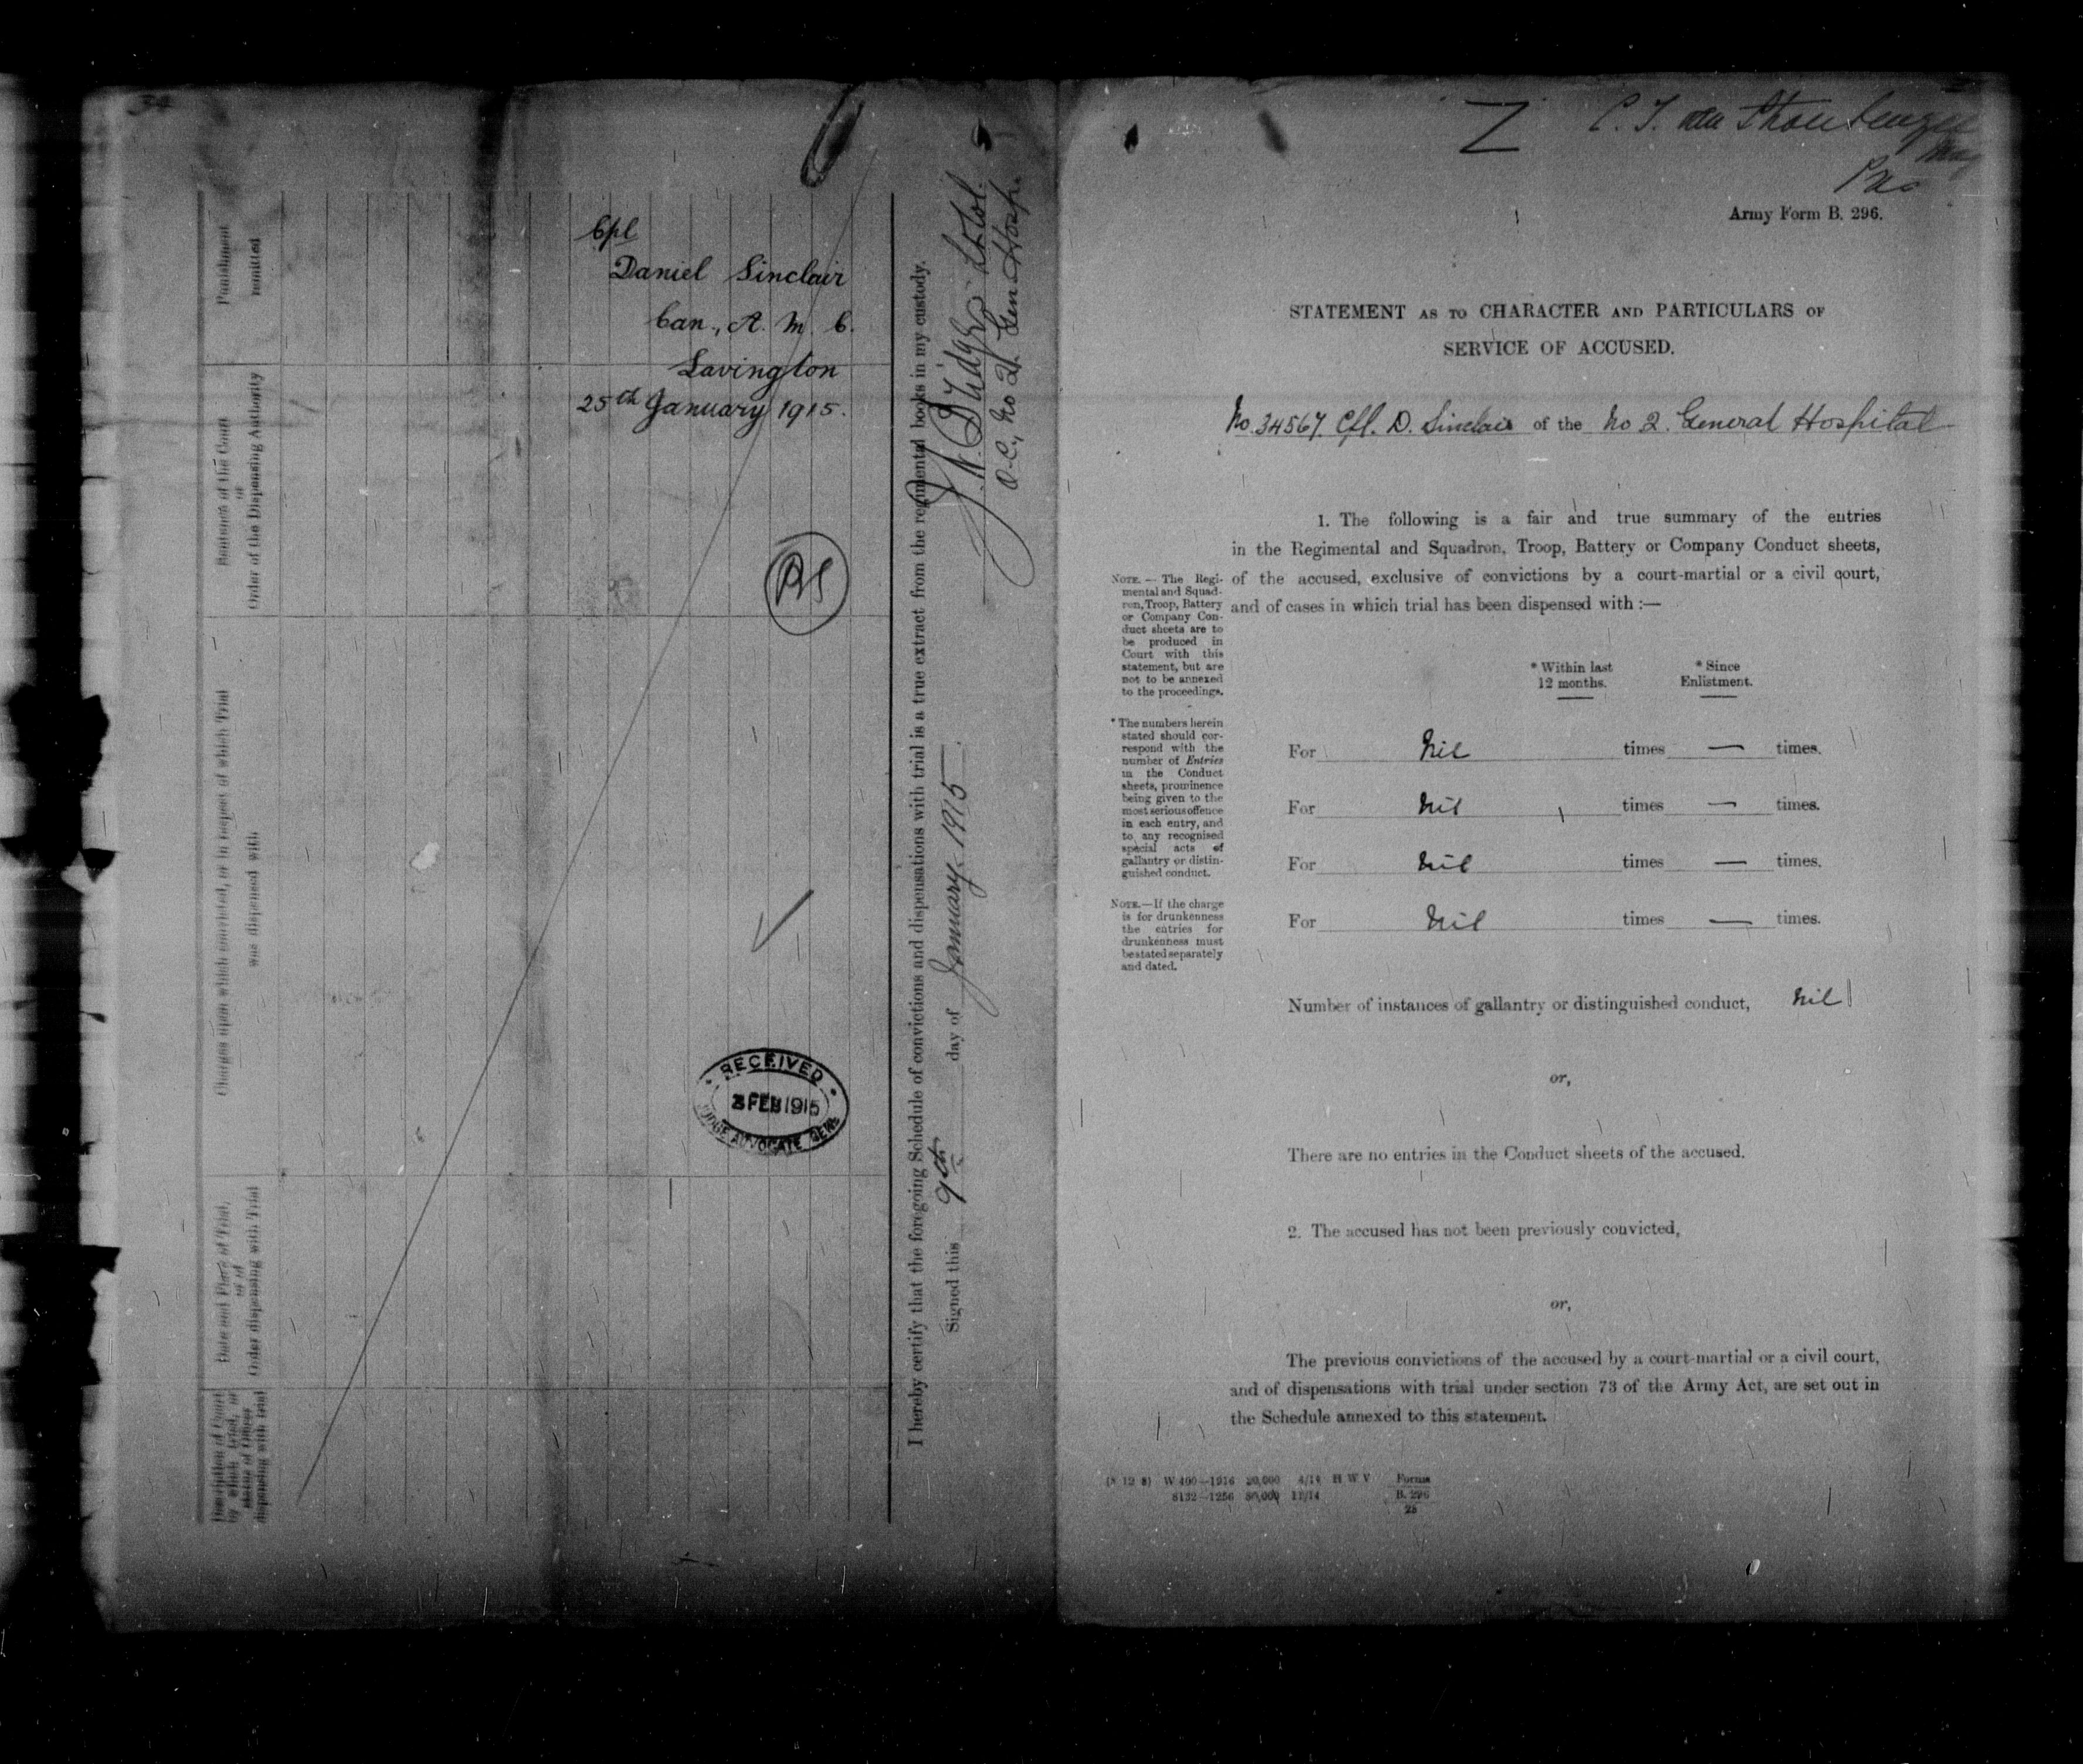 34
Cpl
Daniel Sinclair
Can., A. M. C.
Lavington
25th January 1915.
RECEIVED
FEB 1915
JUDGE ADVOCATE GENL
Punishment
remitted
Sentence of the Court
or
Order of the Dispensing Authority
Charges upon which convicted, or in respect of which Trial
was dispensed with
Date and Place of Trial,
or of
Order dispensing with Trial
Description of Court
by which tried, or
status of Officer
dispensing with trial
I hereby certify that the foregoing Schedule of convictions and dispensations with trial is a true extract from the regimental books in my custody.
Signed this 9th day of January 1915.
Lt Col.
O.C., No 2. Gen Hosp.
Z
C. J.
Army Form B. 296.
STATEMENT AS TO CHARACTER AND PARTICULARS OF
SERVICE OF ACCUSED.
No. 34567. Cpl. D. Sinclair of the No 2. General Hospital
1. The following is a fair and true summary of the entries
in the Regimental and Squadron, Troop, Battery or Company Conduct sheets,
of the accused, exclusive of convictions by a court-martial or a civil court,
and of cases in which trial has been dispensed with :—
NOTE. — The Regi-
mental and Squad-
ron, Troop, Battery
or Company Con-
duct sheets are to
be produced in
Court with this
statement, but are
not to be annexed
to the proceedings.
* The numbers herein
stated should cor-
respond with the
number of Entries
in the Conduct
sheets, prominence
being given to the
most serious offence
in each entry, and
to any recognised
special acts of
gallantry or distin-
guished conduct.
NOTE.—If the charge
is for drunkenness
the entries for
drunkenness must
be stated separately
and dated.
* Within last
12 months.
* Since
Enlistment.
For Nil times — times.
For Nil times — times.
For Nil times — times.
For Nil times — times.
Number of instances of gallantry or distinguished conduct, Nil
or,
There are no entries in the Conduct sheets of the accused.
2. The accused has not been previously convicted,
or,
The previous convictions of the accused by a court-martial or a civil court,
and of dispensations with trial under section 73 of the Army Act, are set out in
the Schedule annexed to this statement.
W 400—1916 20,000 4/14 H W V Forms
8132—1256 50,000 11/14 B. 296